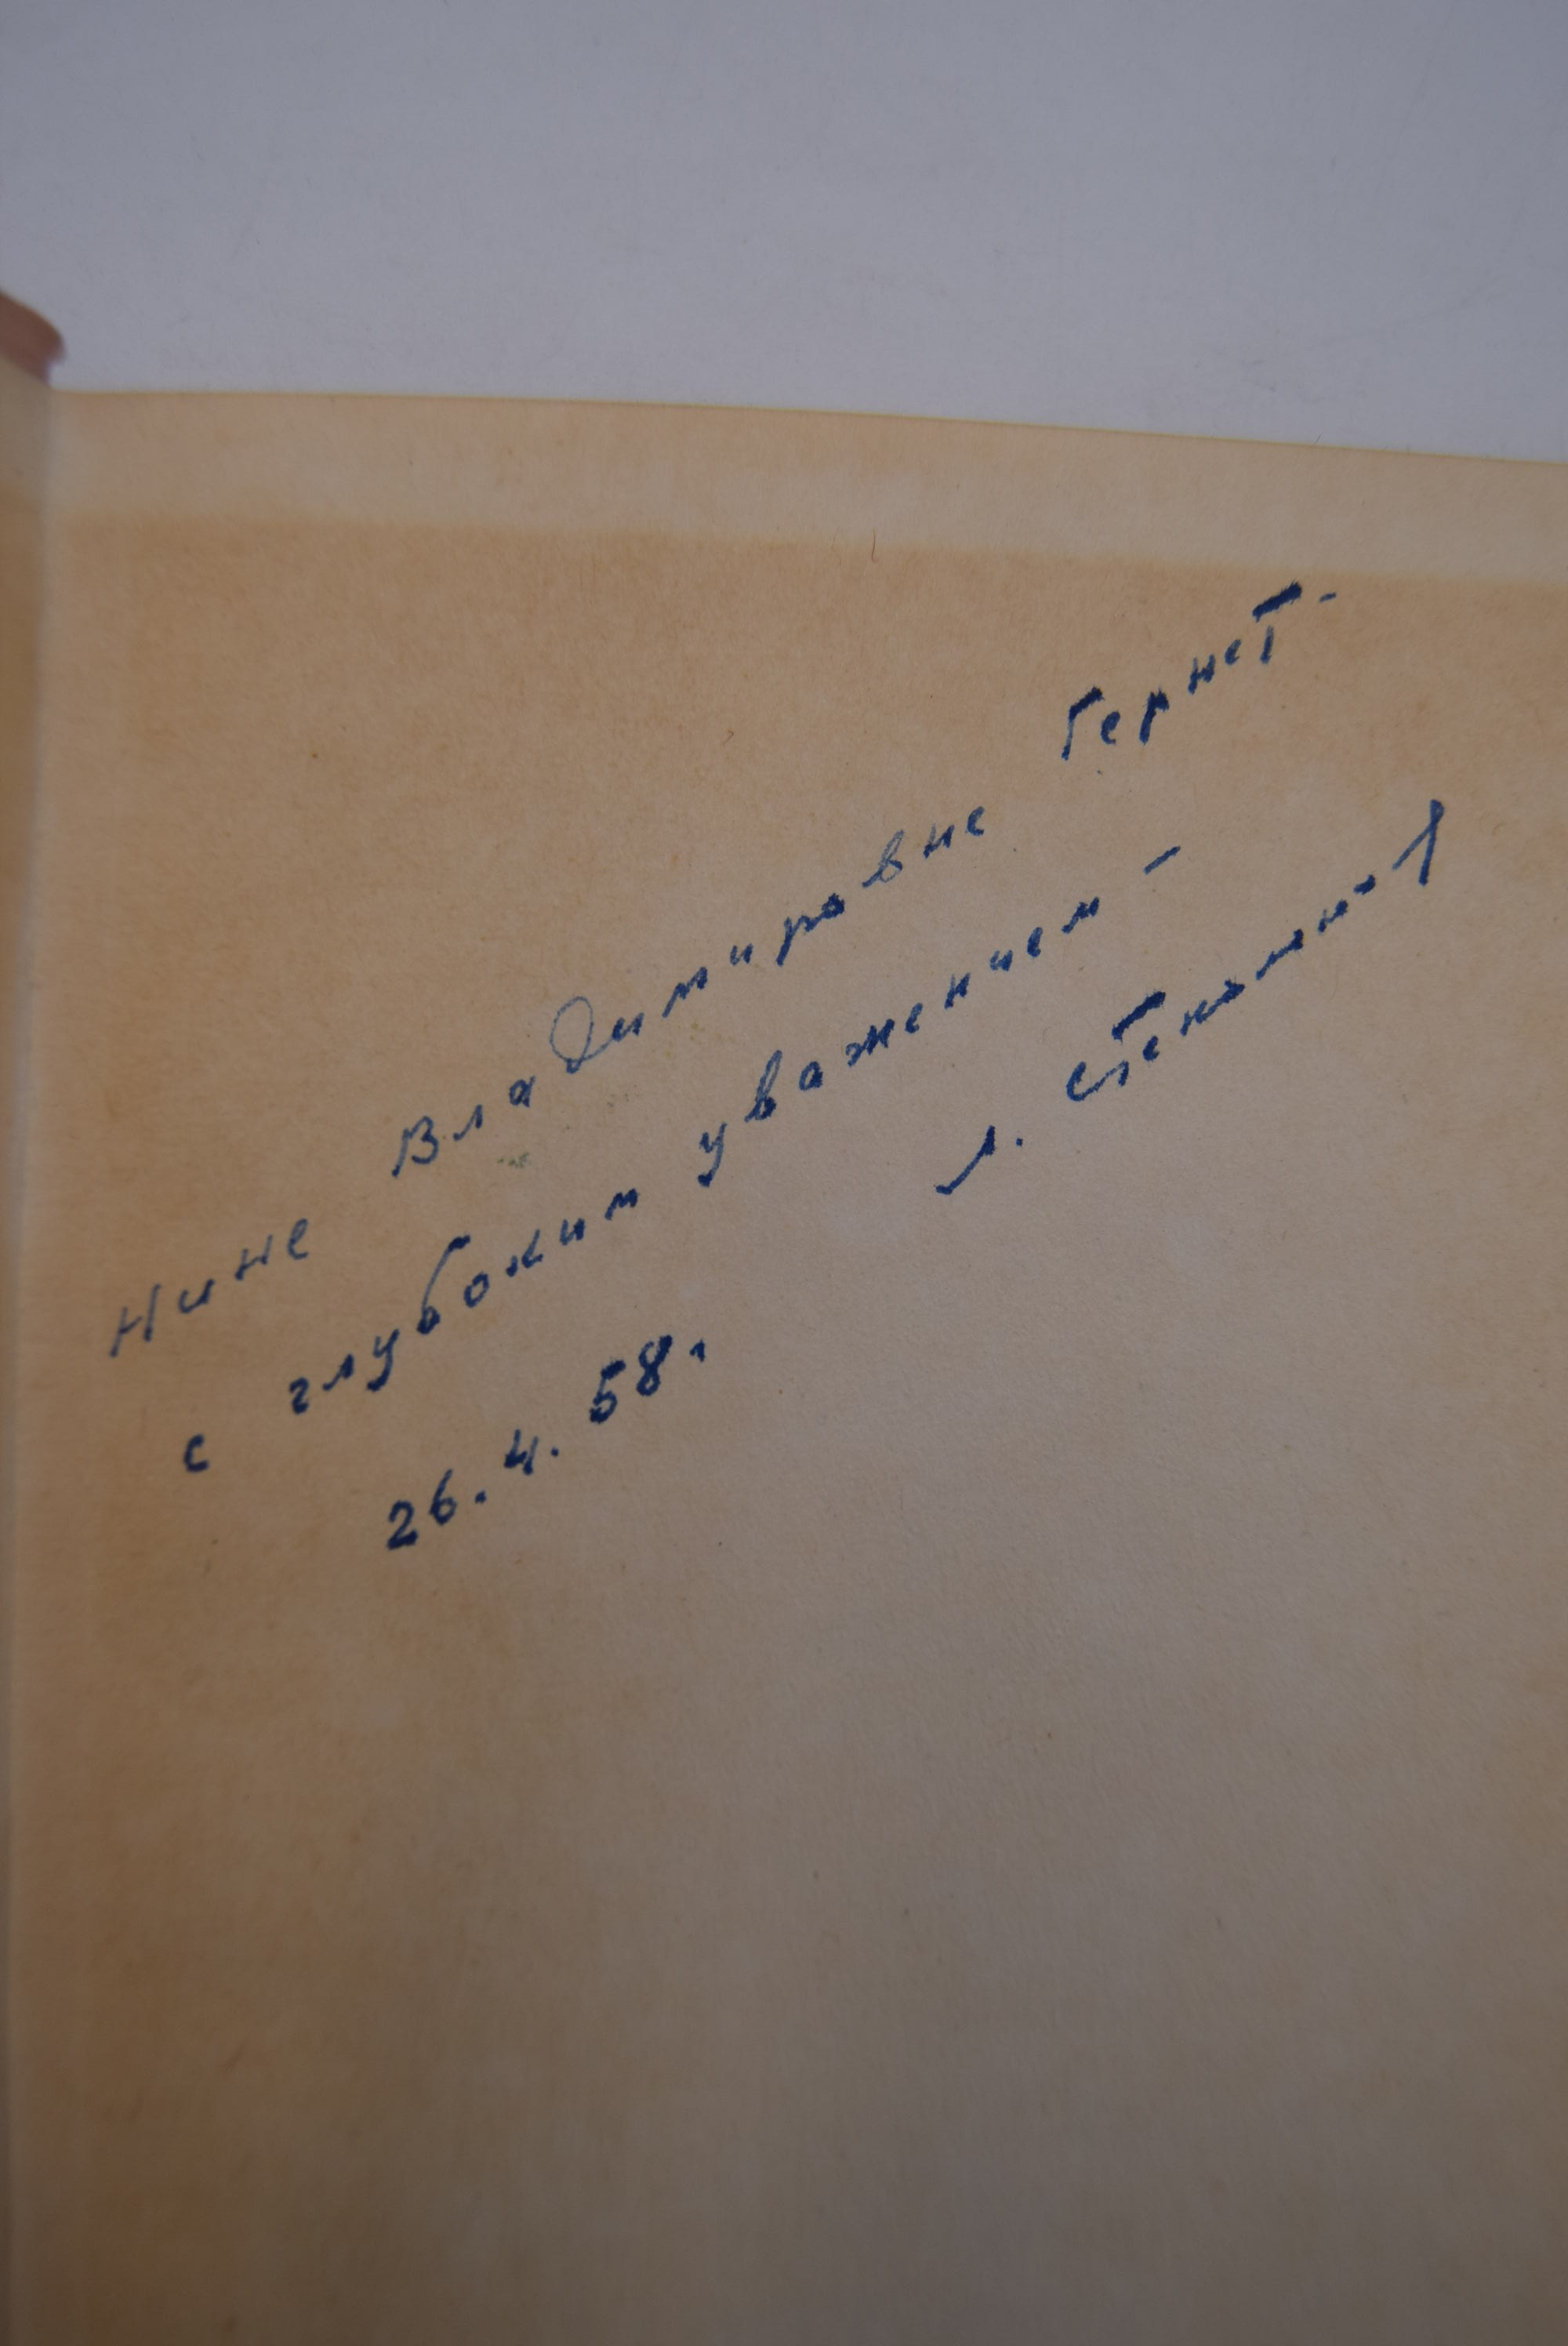 Нине Владимировне Гернет -
с глубоким уважением -
Л. Стекольников
26.4.58.